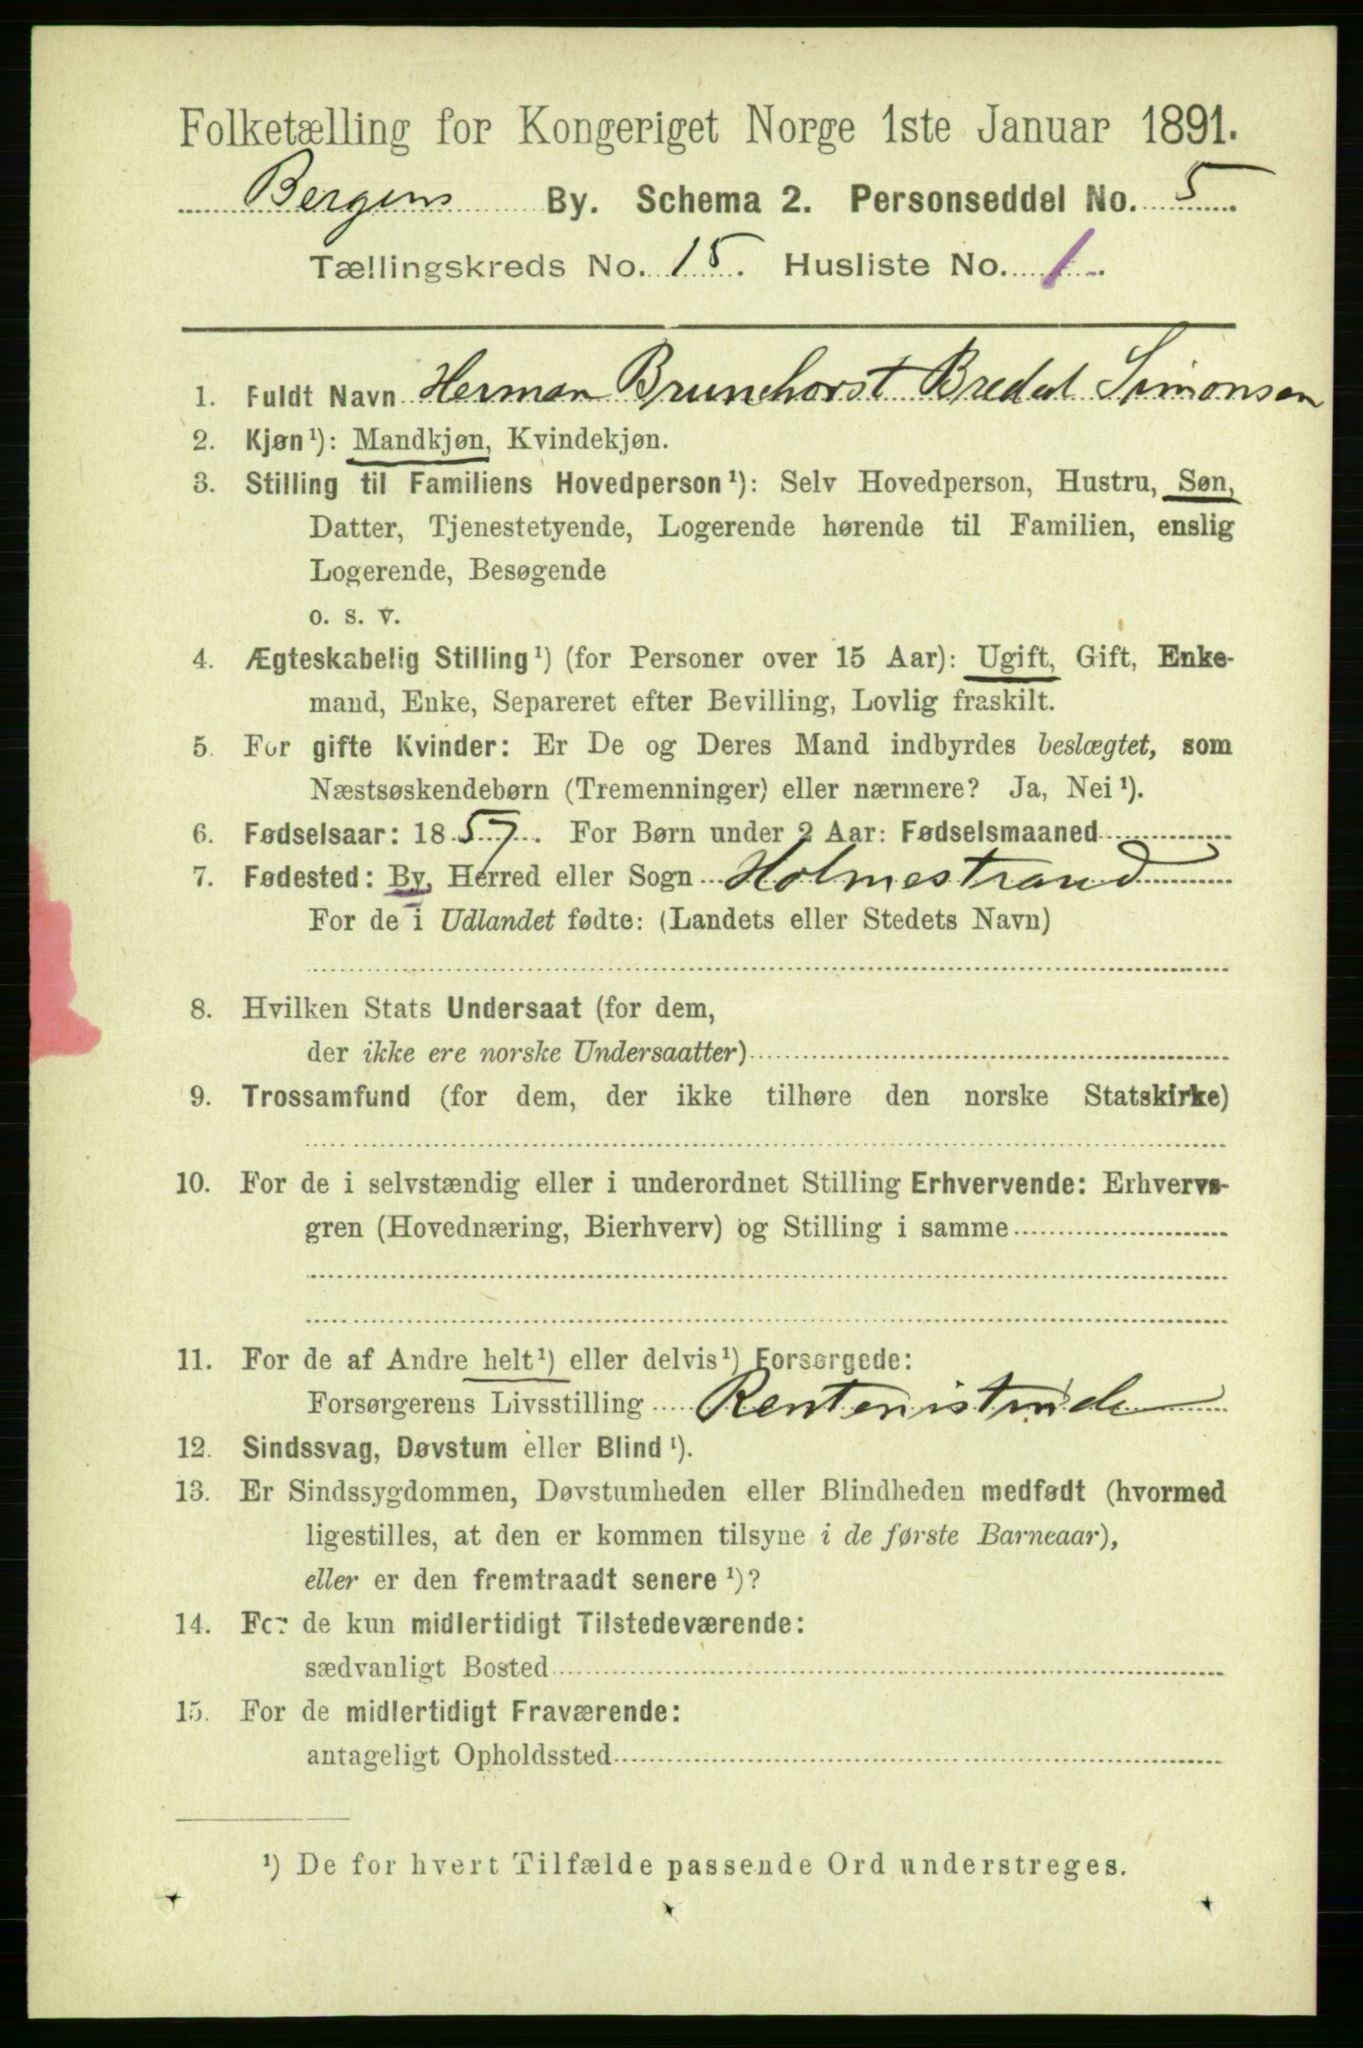 Folketælling for Kongeriget Norge 1ste Januar 1891.
Bergens By. Schema 2. Personseddel No. 5
Tællingskreds No. 15. Husliste No. 1.
1. Fuldt Navn Herman Brunchorst Bredal Simonsen
2. Kjøn¹): Mandkjøn, Kvindekjøn.
3. Stilling til Familiens Hovedperson¹): Selv Hovedperson, Hustru, Søn,
Datter, Tjenestetyende, Logerende hørende til Familien, enslig
Logerende, Besøgende
o. s. v.
4. Ægteskabelig Stilling¹) (for Personer over 15 Aar): Ugift, Gift, Enke-
mand, Enke, Separeret efter Bevilling, Lovlig fraskilt.
5. For gifte Kvinder: Er De og Deres Mand indbyrdes beslægtet, som
Næstsøskendebørn (Tremenninger) eller nærmere? Ja, Nei¹).
6. Fødselsaar: 1857. For Børn under 2 Aar: Fødselsmaaned
7. Fødested: By, Herred eller Sogn Holmestrand
For de i Udlandet fødte: (Landets eller Stedets Navn)
8. Hvilken Stats Undersaat (for dem,
der ikke ere norske Undersaatter)
9. Trossamfund (for dem, der ikke tilhøre den norske Statskirke)
10. For de i selvstændig eller i underordnet Stilling Erhvervende: Erhvervs-
gren (Hovednæring, Bierhverv) og Stilling i samme
11. For de af Andre helt¹) eller delvis¹) Forsørgede:
Forsørgerens Livsstilling Rentenistinde
12. Sindssvag, Døvstum eller Blind¹).
13. Er Sindssygdommen, Døvstumheden eller Blindheden medfødt (hvormed
ligestilles, at den er kommen tilsyne i de første Barneaar),
eller er den fremtraadt senere¹)?
14. For de kun midlertidigt Tilstedeværende:
sædvanligt Bosted
15. For de midlertidigt Fraværende:
antageligt Opholdssted
¹) De for hvert Tilfælde passende Ord understreges.